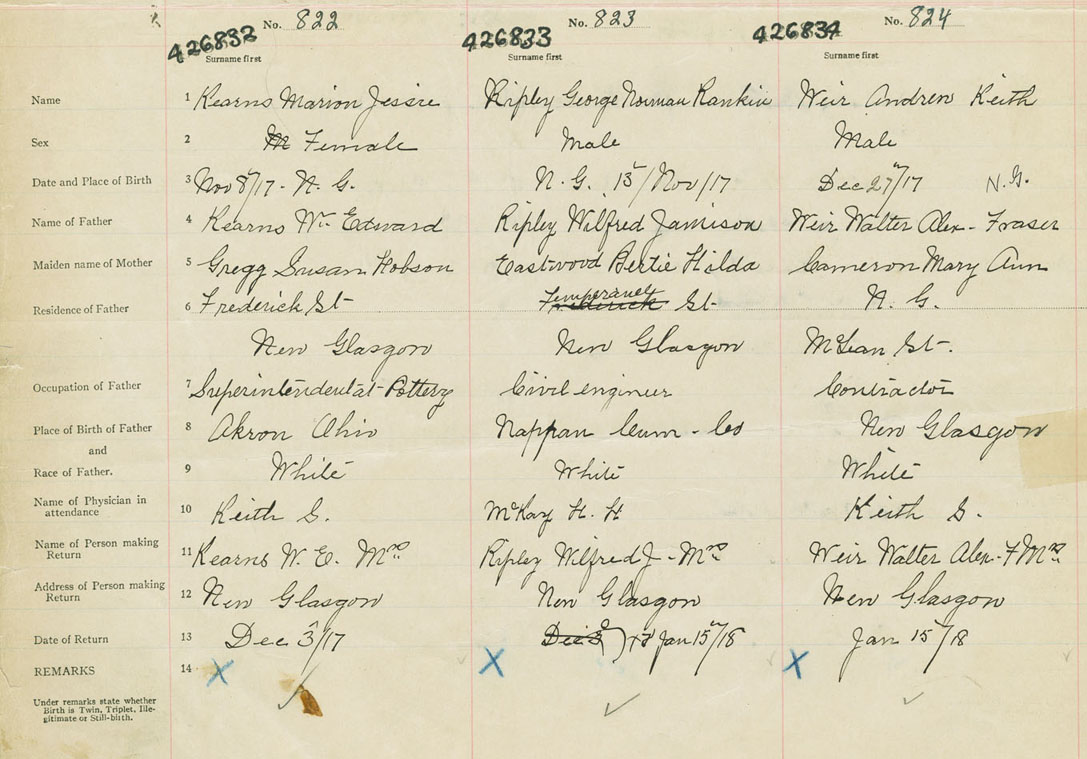 No. 822 No. 823 No. 824
426832 426833 426834
Surname first Surname first Surname first
Name 1 Kearns Marion Jessie Ripley George Norman Rankin Weir Andrew Keith
Sex 2 M Female Male Male
Date and Place of Birth 3 Nov 8/17 - N. G. N. G. 15/Nov/17 Dec 27/17 N. G.
Name of Father 4 Kearns Wm Edward Ripley Wilfred Jamison Weir Walter Alex - Fraser
Maiden name of Mother 5 Gregg Susan Hobson Eastwood Bertie Hilda Cameron Mary Ann
Residence of Father 6 Frederick St Frederick Temperance St N. G.
New Glasgow New Glasgow McLean St.
Occupation of Father 7 Superintendent at Pottery Civil engineer Contractor
Place of Birth of Father 8 Akron Ohio Nappan Cum - Co New Glasgow
and
Race of Father. 9 White White White
Name of Physician in
attendance 10 Keith S. McKay H. H Keith S.
Name of Person making
Return 11 Kearns W. E. Mrs Ripley Wilfred J - Mrs Weir Walter Alex - F Mrs
Address of Person making
Return 12 New Glasgow New Glasgow New Glasgow
Date of Return 13 Dec 3/17 Dec 3 Jan 15/18 Jan 15/18
REMARKS 14 X X X
Under remarks state whether
Birth is Twin, Triplet, Ille-
gitimate or Still-birth.